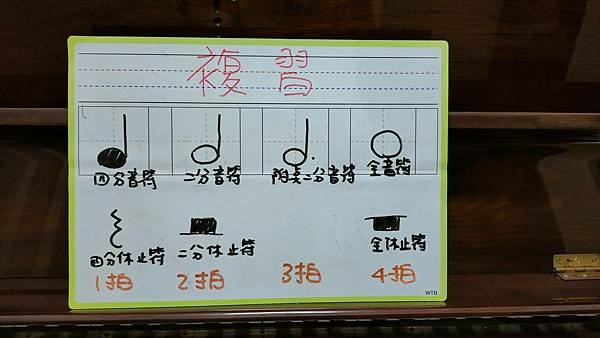 複習
四分音符 二分音符 附點二分音符 全音符
四分休止符 二分休止符 全休止符
1拍 2拍 3拍 4拍
WTB